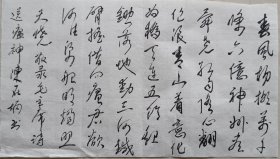 春風楊柳萬千
條六億神州盡
舜堯紅雨隨心翻
作浪青山着意化
為橋天連五嶺銀
鋤落地動三河鐵
臂搖借問瘟君欲
何往紙船明燭照
天燒 敬录毛主席詩
送瘟神